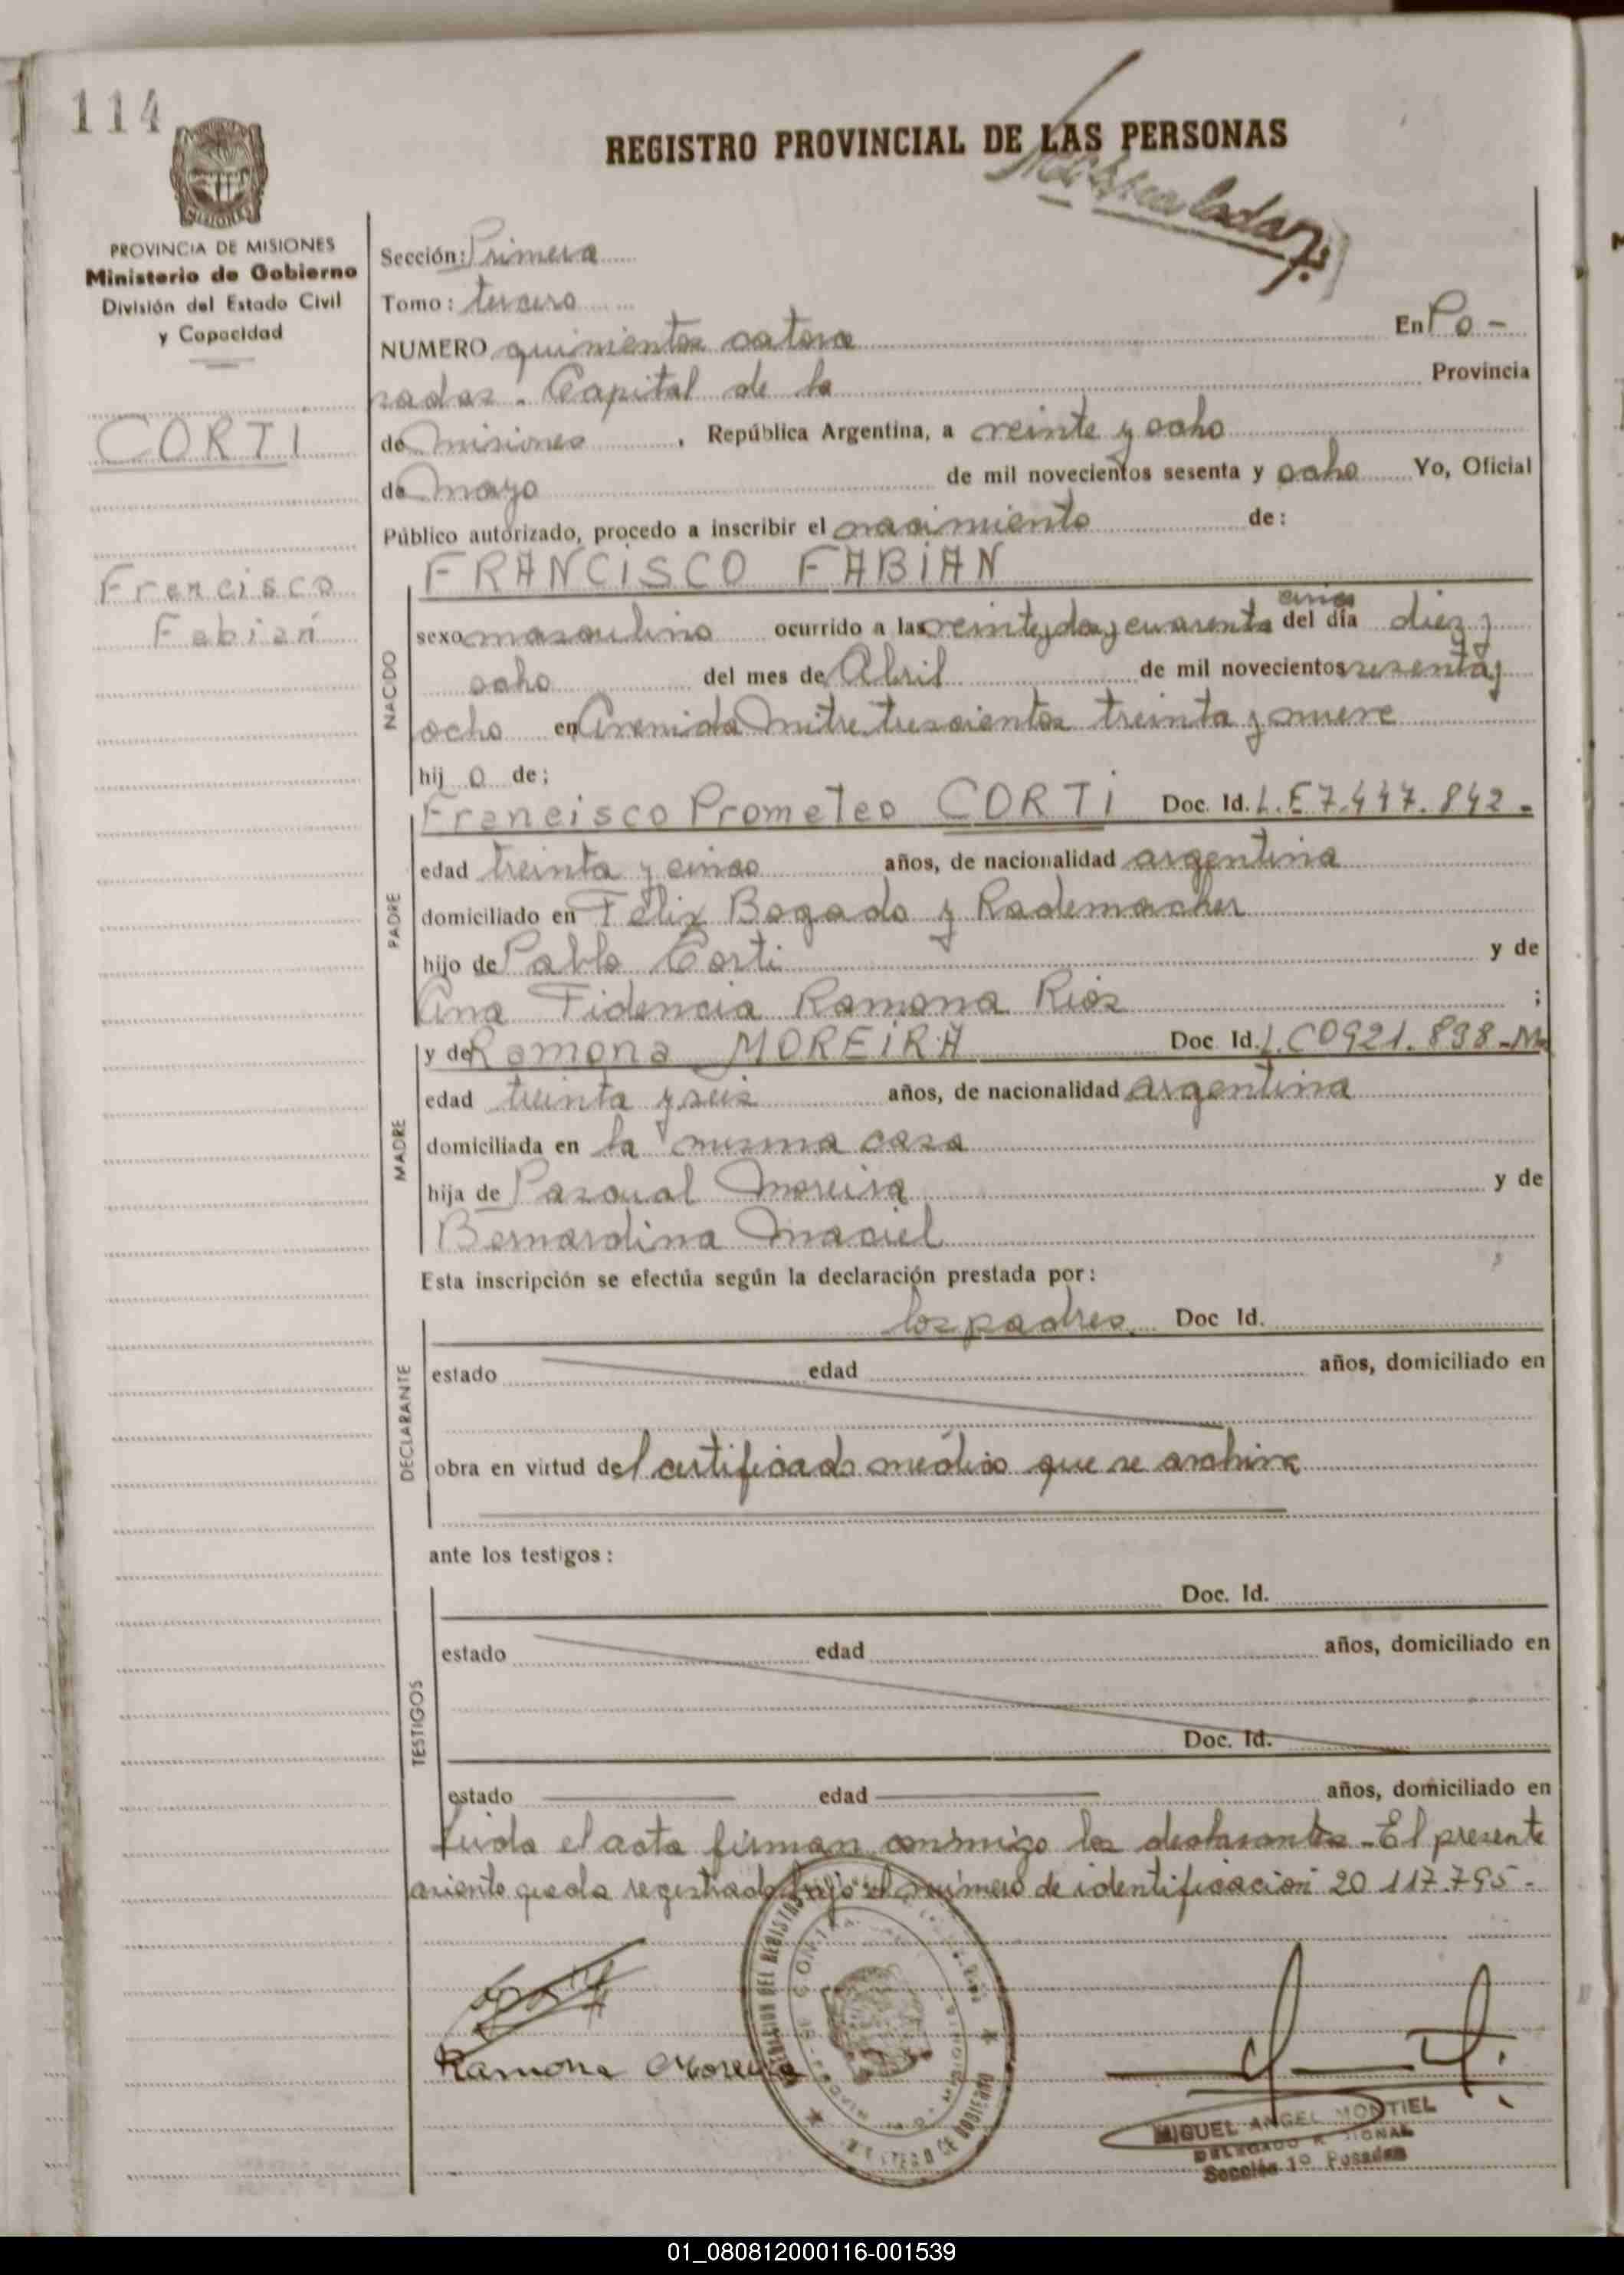 114
REGISTRO PROVINCIAL DE LAS PERSONAS
MISIONES
PROVINCIA DE MISIONES
Ministerio de Gobierno
División del Estado Civil
y Capacidad
CORTI
Francisco
Fabián
Sección: Primera
Tomo: tercero
NUMERO quinientos catorce En Po-
sadas. Capital de la Provincia
de misiones, República Argentina, a veinte y ocho
de mayo de mil novecientos sesenta y ocho Yo, Oficial
Público autorizado, procedo a inscribir el nacimiento de:
FRANCISCO FABIAN
cinco
sexo masculino ocurrido a las veinte y dos y cuarenta del día diez y
ocho del mes de Abril de mil novecientos sesenta y
ocho en Avenida mitre trescientos treinta y nueve
hijo de;
NACIDO
Francisco Prometeo CORTI Doc. Id. L.E 7.447.842-
edad treinta y cinco años, de nacionalidad argentina
domiciliado en Félix Bogado y Rademacher
hijo de Pablo Corti y de
Ana Fidencia Ramona Rios ;
PADRE
y de Ramona MOREIRA Doc Id. L.C 0921.898-M
edad treinta y seis años, de nacionalidad argentina
domiciliada en la misma casa
hija de Pascual Moreira y de
Bernardina Maciel
MADRE
Esta inscripción se efectúa según la declaración prestada por:
los padres Doc Id.
estado edad años, domiciliado en
obra en virtud del certificado médico que se archiva
DECLARANTE
ante los testigos:
Doc. Id.
estado edad años, domiciliado en
Doc. Id.
estado edad años, domiciliado en
TESTIGOS
Leida el acta firman conmigo los declarantes. El presente
asiento queda registrado bajo el número de identificacion 20 117.795-
Ramona Moreira
MIGUEL ANGEL MONTIEL
DELEGADO
Sección 1º Posadas
01_080812000116-001539